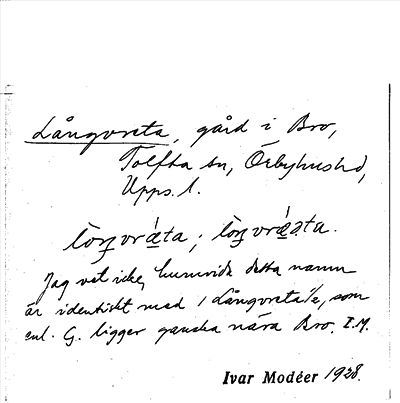 Långvreta, gård i Bro,
Tolfta sn, Örbyhushd,
Upps. l.
lòŋvrǽta; lòŋvrǽta.
Jag vet icke, huruvida detta namn
är identiskt med 1 Långvreta, som
enl. G. ligger ganska nära Bro. I.M.
Ivar Modéer 1928.